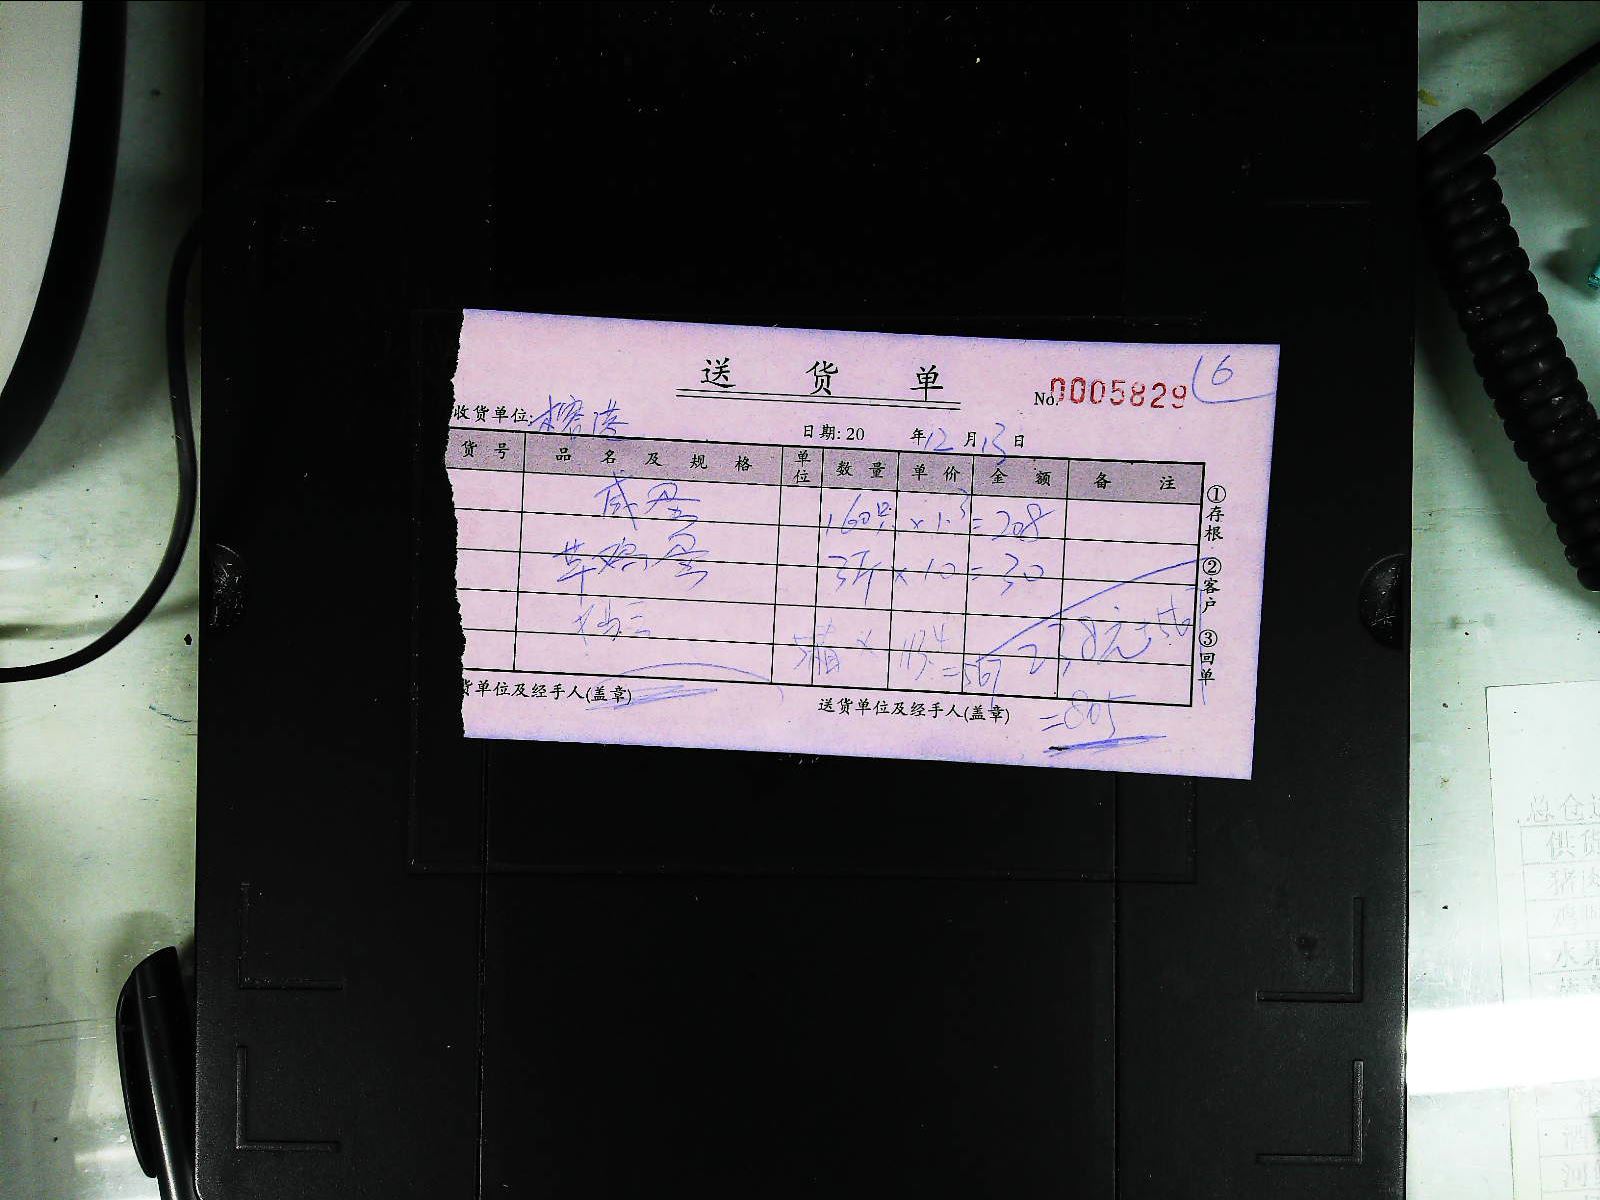 送 货 单
No.0005829
16
收货单位:榕港
日期:20 年12月13日
货号 品名及规格 单位 数量 单价 金额 备注
咸蛋 160只 ×1.3 = 208
草鸡蛋 3斤 × 10 = 30
5箱 × 113.4 = 567
238元+567
=805
货单位及经手人(盖章)
送货单位及经手人(盖章)
①存根 ②客户 ③回单
总仓
供货
猪肉
鸡鸭
水果
酒